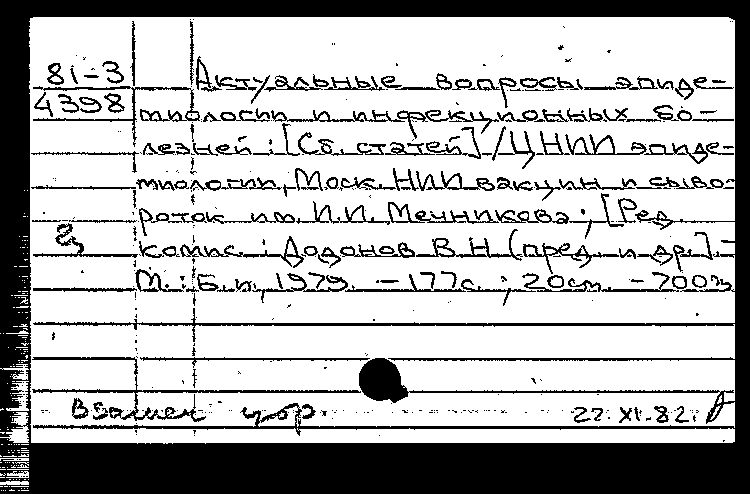 81-3 Актуальные вопросы эпиде-
4398 миологии и инфекционных бо-
лезней : [Сб. статей] / ЦНИИ эпиде-
миологии, Моск. НИИ вакцин и сыво-
роток им. И.И. Мечникова ; [Ред.
комис. : Додонов В.Н (пред. и др.]. -
М. : Б.и., 1979. - 177 с. ; 20 см. - 700 э
Взамен
22. XI. 82.